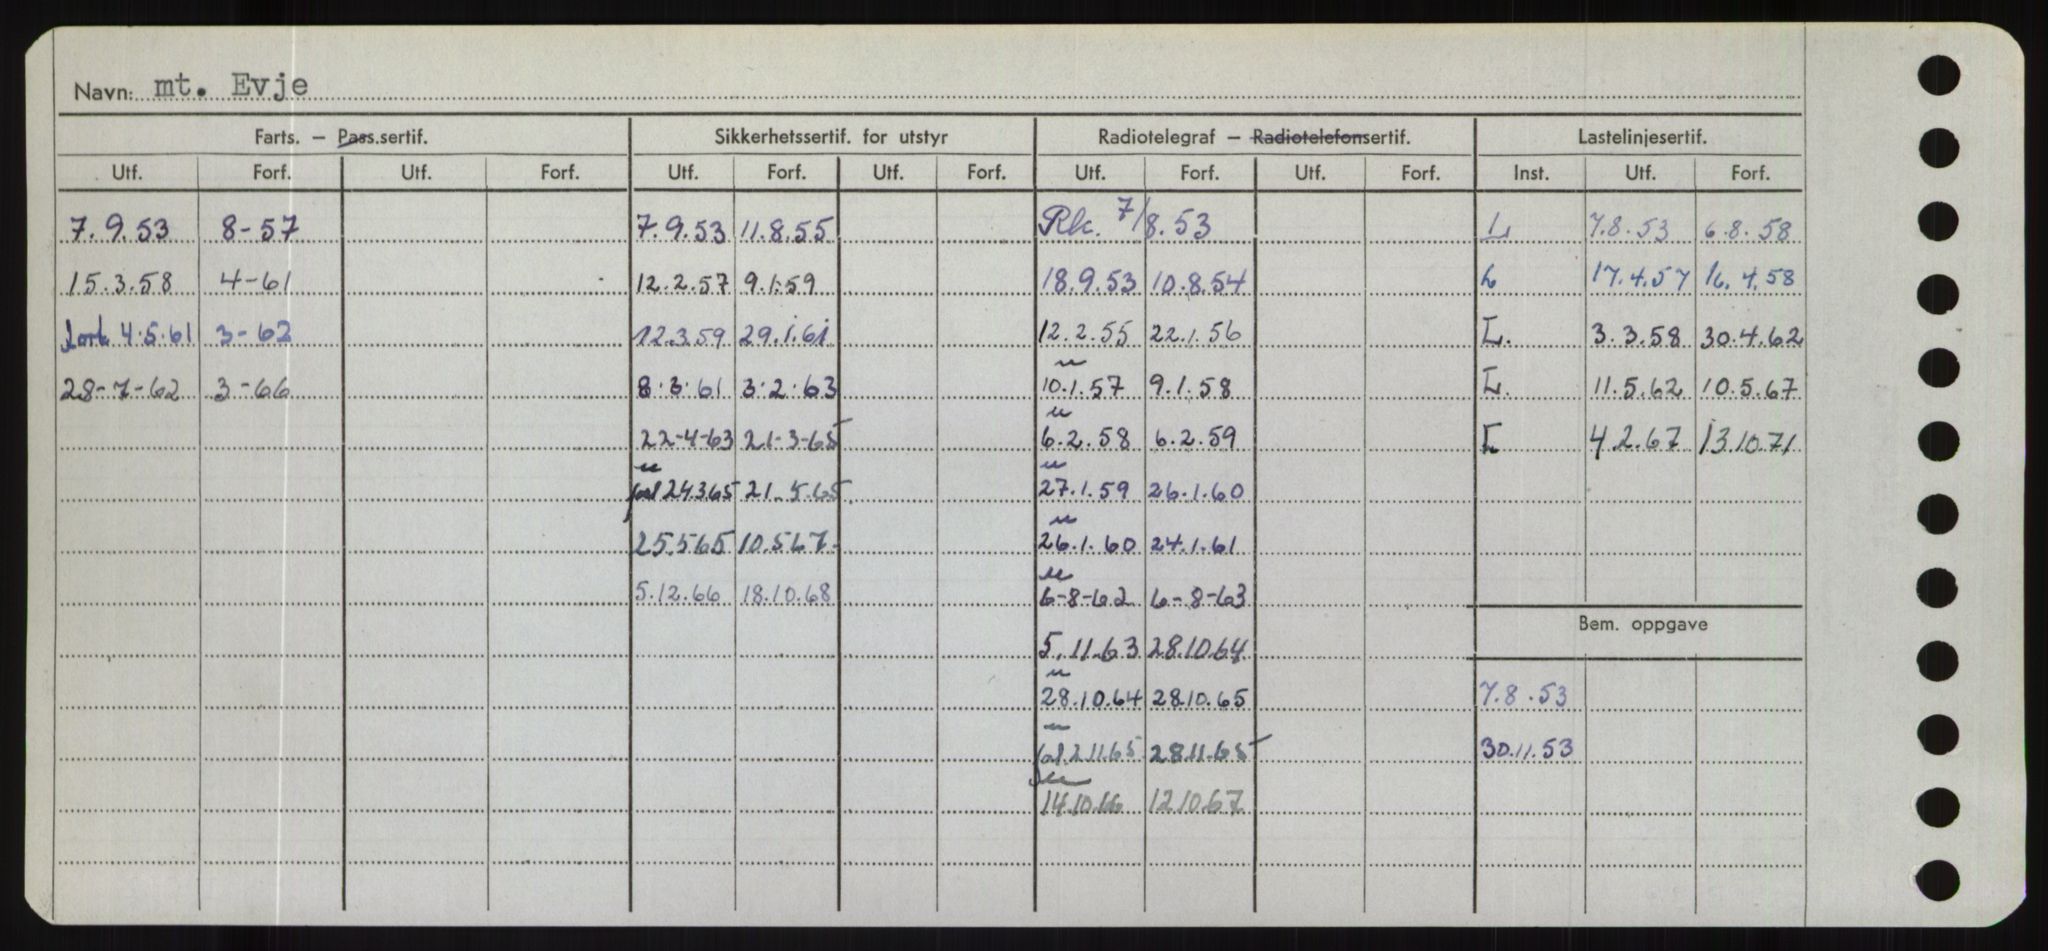 Navn: mt. Evje
Farts. — Pass.sertif. Sikkerhetssertif. for utstyr Radiotelegraf — Radiotelefonsertif. Lastelinjesertif.
Utf. Forf. Utf. Forf. Utf. Forf. Utf. Forf. Utf. Forf. Utf. Forf. Inst. Utf. Forf.
7.9.53 8-57 7.9.53 11.8.55 Rk. 7/8.53 L 7.8.53 6.8.58
15.3.58 4-61 12.2.57 9.1.59 18.9.53 10.8.54 L 17.4.57 16.4.58
4.5.61 3-62 12.3.59 29.1.61 12.2.55 22.1.56 L. 3.3.58 30.4.62
28-7-62 3-66 8.3.61 3.2.63 10.1.57 9.1.58 L. 11.5.62 10.5.67
22-4-63 21-3-65 6.2.58 6.2.59 L 4.2.67 13.10.71
24365 21.5.65 27.1.59 26.1.60
25.565 10.567 26.1.60 24.1.61
5.12.66 18.10.68 6-8-62 6-8-63
Bem. oppgave
5.11.63 28.10.64
28.10.64 28.10.65 7.8.53
2.11.65 28.11.65 30.11.53
14.10.66 12.10.67